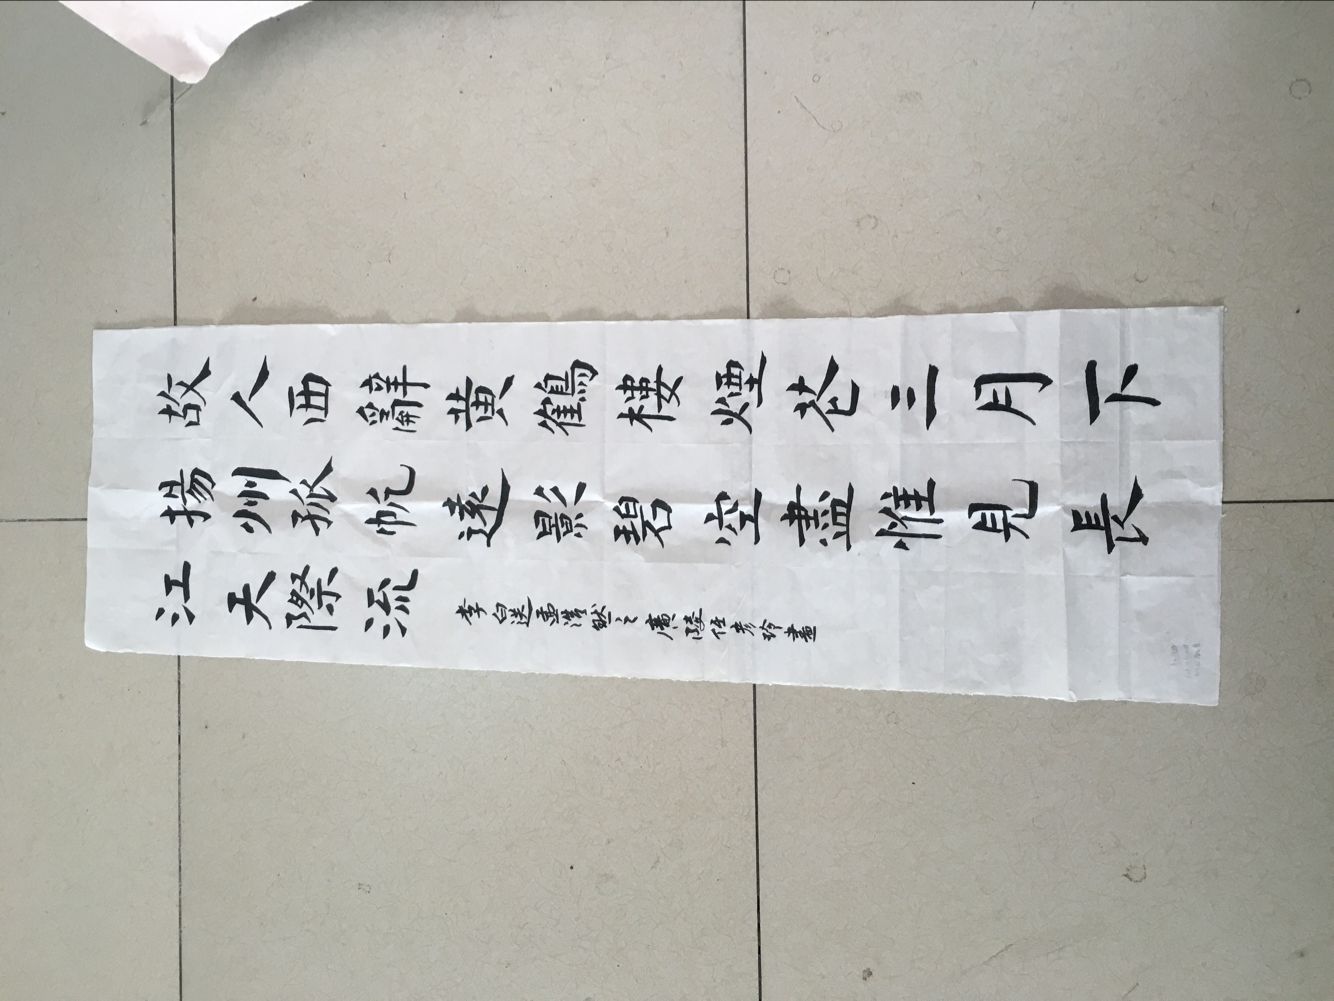 故人西辭黃鶴樓煙花三月下
揚州孤帆遠影碧空盡惟見長
江天際流
李白送孟浩然之廣陵任彦玲書